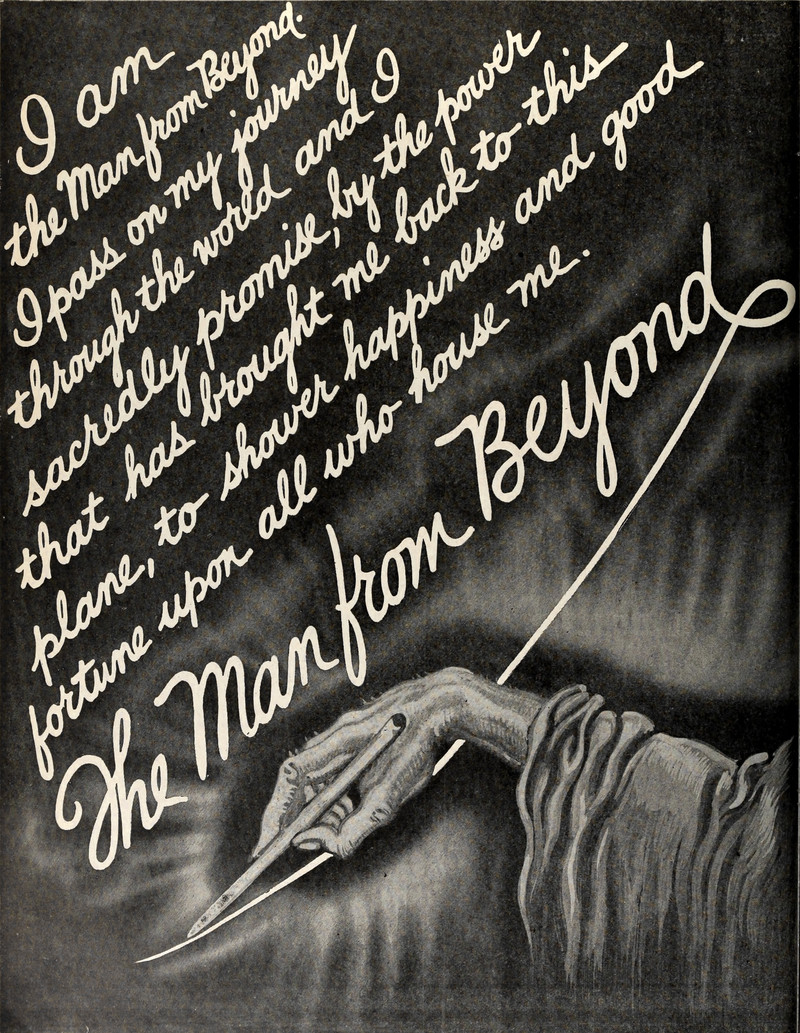 I am
the Man from Beyond.
I pass on my journey
through the world and I
sacredly promise, by the power
that has brought me back to this
plane, to shower happiness and good
fortune upon all who house me.
The Man from Beyond